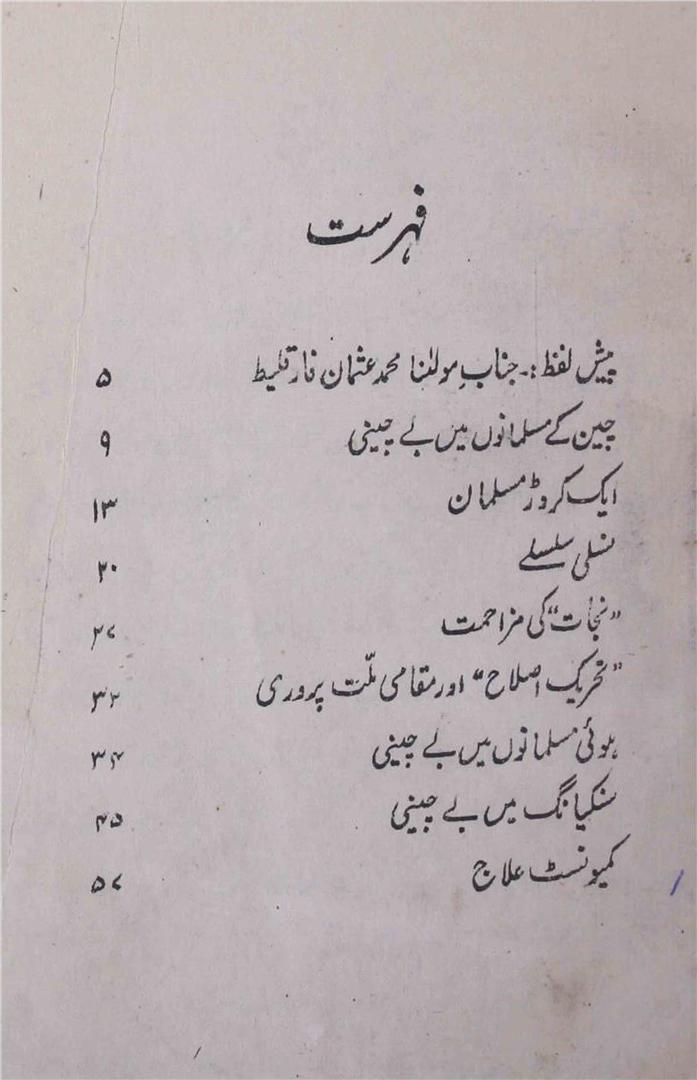 فہرست
پیش لفظ :۔ جنابِ مولٰنا محمد عثمان فارقلیط ۵
چین کے مسلمانوں میں بے چینی ۹
ایک کروڑ مسلمان ۱۳
نسلی سلسلے ۲۰
"نجات" کی مزاحمت ۲۷
"تحریک اصلاح" اور مقامی ملّت پروری ۳۲
ہوئی مسلمانوں میں بے چینی ۳۴
سنکیانگ میں بے چینی ۴۵
کمیونسٹ علاج ۵۷